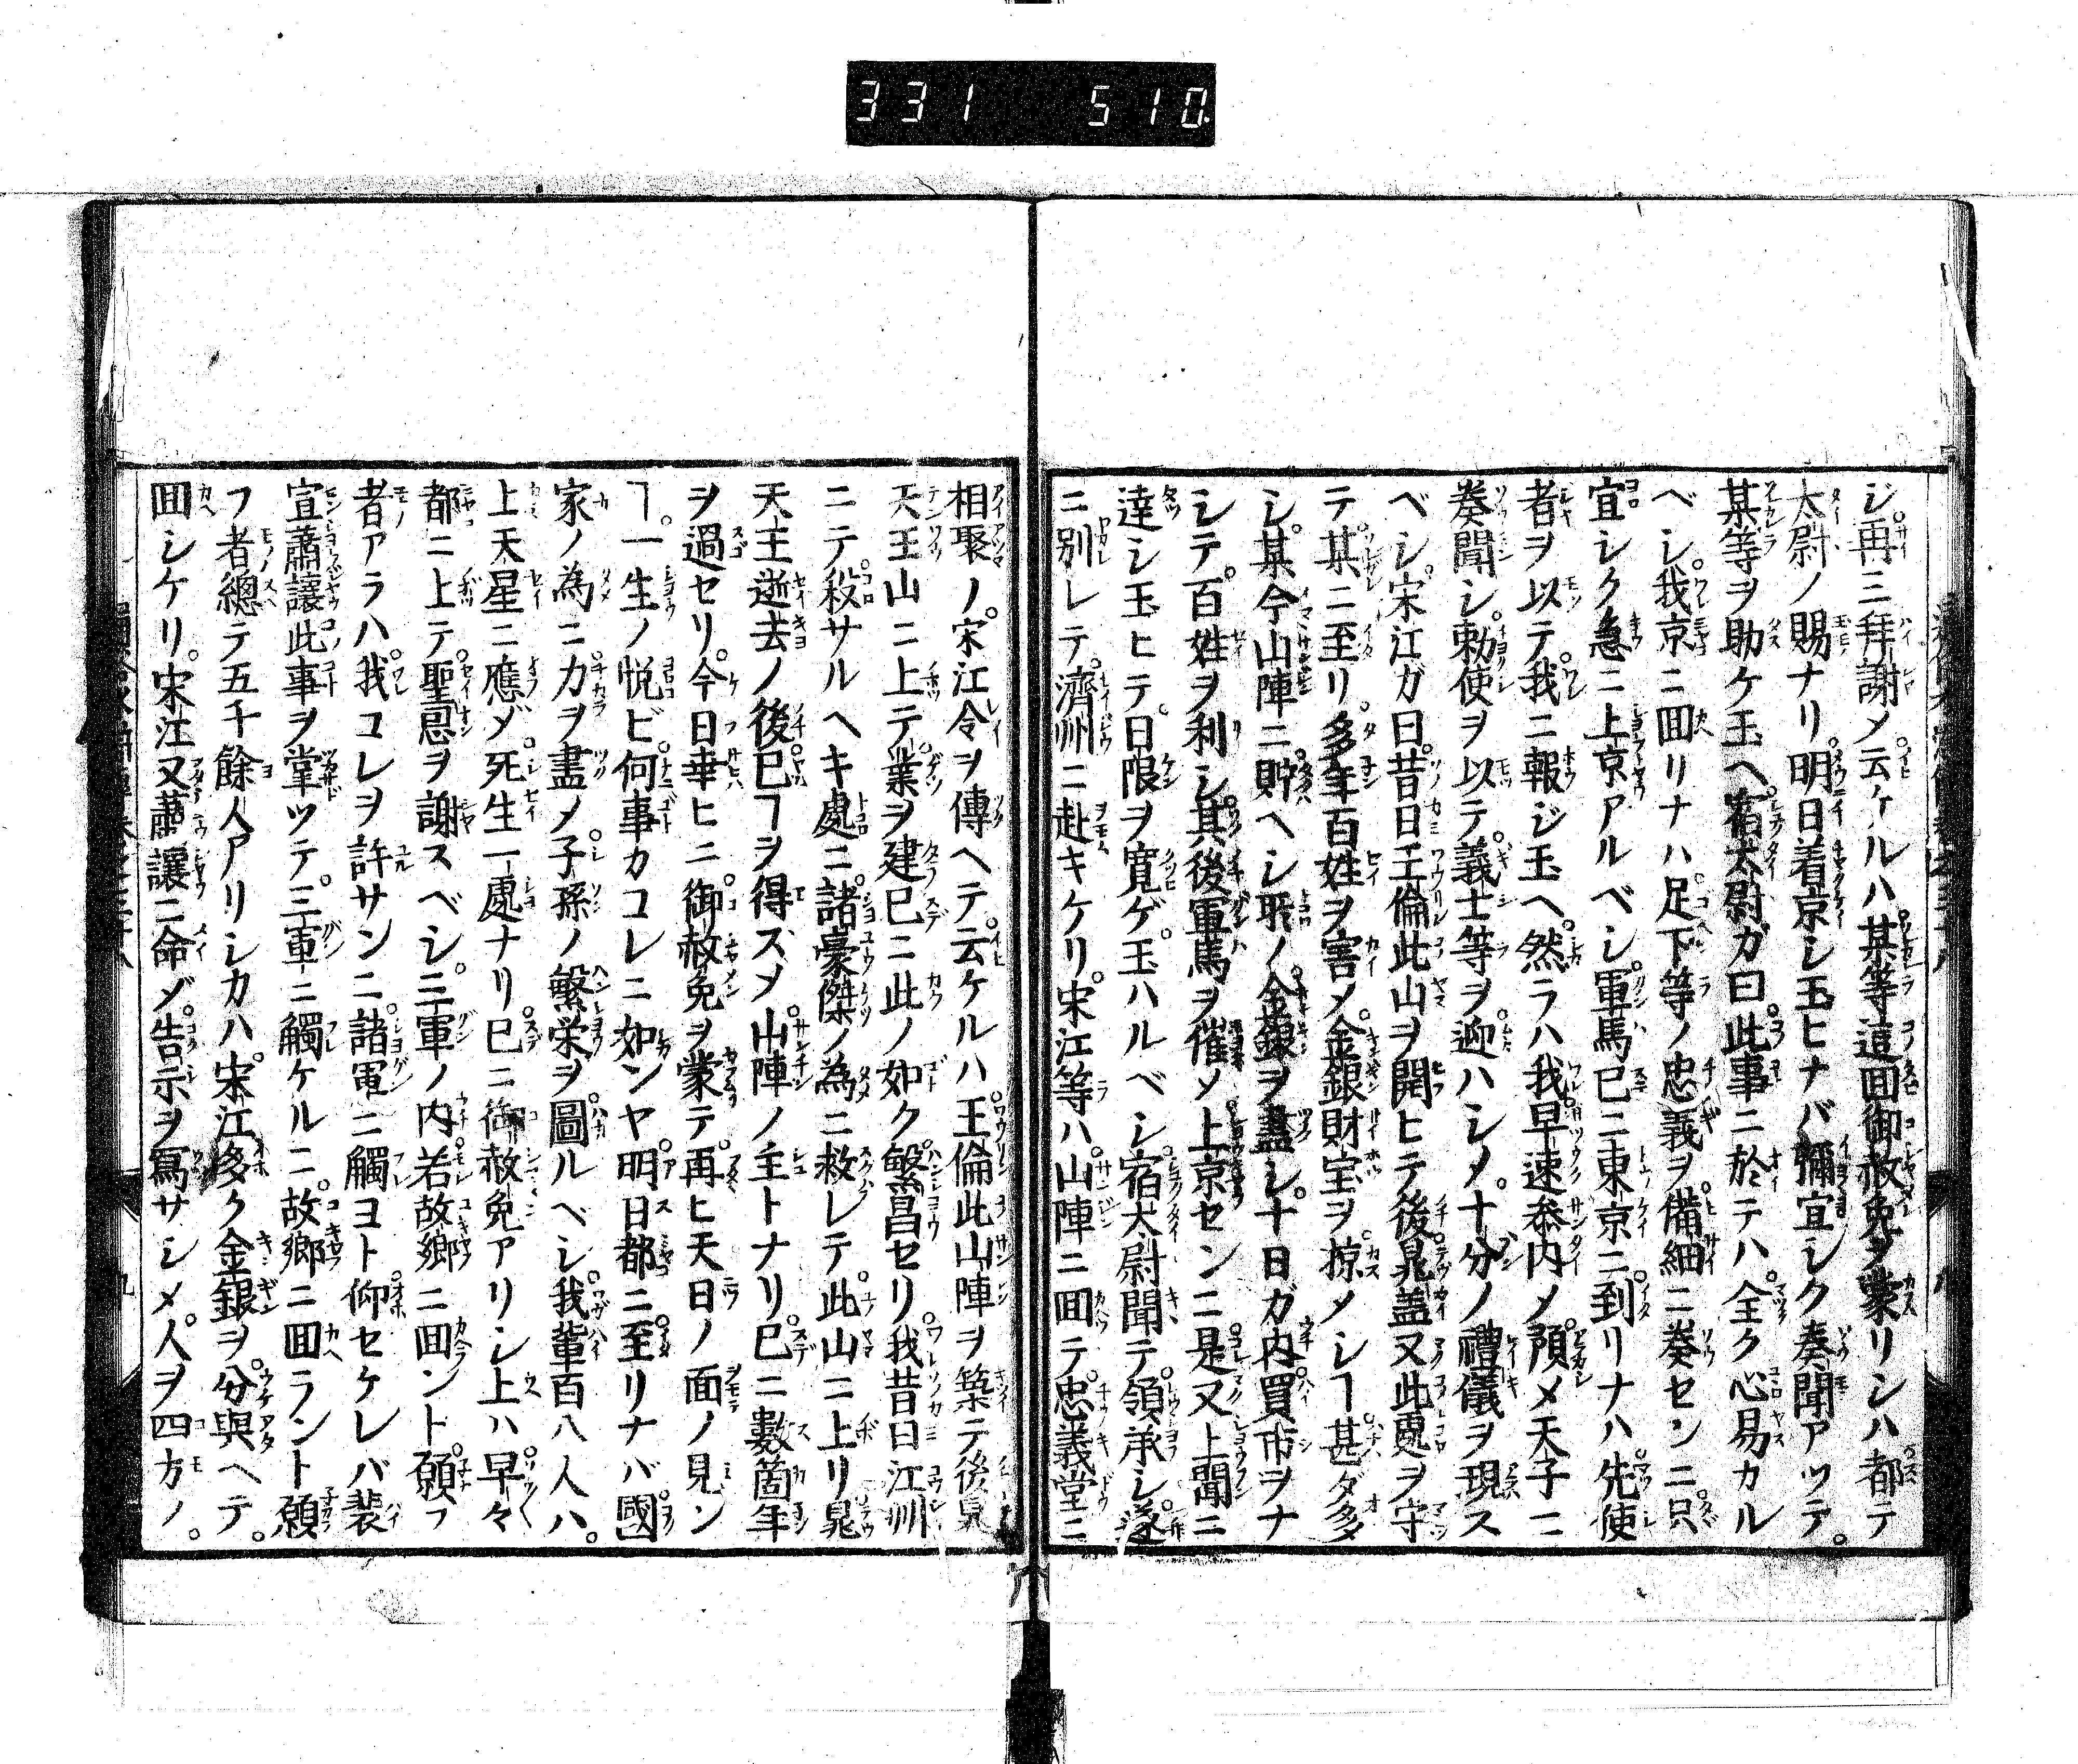 331 510
ジ再三拜謝メ云ケルハ某等這回御赦免ヲ蒙リシハ都テ
太尉ノ賜ナリ明日着京シ玉ヒナバ彌宜シク奏聞アツテ
某等ヲ助ケ玉ヘ宿太尉ガ曰此事ニ於テハ全ク心易カル
ベシ我京ニ回リナハ足下等ノ忠義ヲ備細ニ奏センニ只
宜シク急ニ上京アルベシ軍馬已ニ東京ニ到リナハ先使
者ヲ以テ我ニ報ジ玉ヘ然ラハ我早速参内メ預メ天子ニ
奏聞シ勅使ヲ以テ義士等ヲ迎ハシメ十分ノ禮儀ヲ現ス
ベシ宋江ガ曰昔日王倫此山ヲ開ヒテ後晁盖又此處ヲ守
テ某ニ至リ多年百姓ヲ害メ金銀財宝ヲ掠メシヿ甚ダ多
シ某今山陣ニ貯ヘシ所ノ金銀ヲ盡シ十日ガ内買市ヲナ
シテ百姓ヲ利シ其後軍馬ヲ催メ上京センニ是又上聞ニ
達シ玉ヒテ日限ヲ寛ゲ玉ハルベシ宿太尉聞テ領承シ遂
ニ別レテ濟州ニ赴キケリ宋江等ハ山陣ニ回テ忠義堂ニ
相聚ノ宋江令ヲ傳ヘテ云ケルハ王倫此山陣ヲ築テ後晁
天王山ニ上テ業ヲ建已ニ此ノ如ク繁昌セリ我昔日江州
ニテ殺サルヘキ處ニ諸豪傑ノ為ニ救レテ此山ニ上リ晁
天王逝去ノ後已ヿヲ得スメ山陣ノ主トナリ已ニ數箇年
ヲ過セリ今日幸ヒニ御赦免ヲ蒙テ再ヒ天日ノ面ノ見ン
ヿ一生ノ悦ビ何事カコレニ如ンヤ明日都ニ至リナバ國
家ノ為ニ力ヲ盡メ子孫ノ繁栄ヲ圖ルヘシ我輩百八人ハ
上天星ニ應ゾ死生一處ナリ已ニ御赦免アリシ上ハ早々
都ニ上テ聖恩ヲ謝スベシ三軍ノ内若故郷ニ回ント願フ
者アラハ我コレヲ許サンニ諸軍ニ觸ヨト仰セケレバ裴
宣蕭讓此事ヲ掌ツテ三軍ニ觸ケルニ故郷ニ回ラント願
フ者總テ五千餘人アリシカハ宋江多ク金銀ヲ分與ヘテ
回シケリ宋江又蕭讓ニ命ゾ告示ヲ寫サシメ人ヲ四方ノ